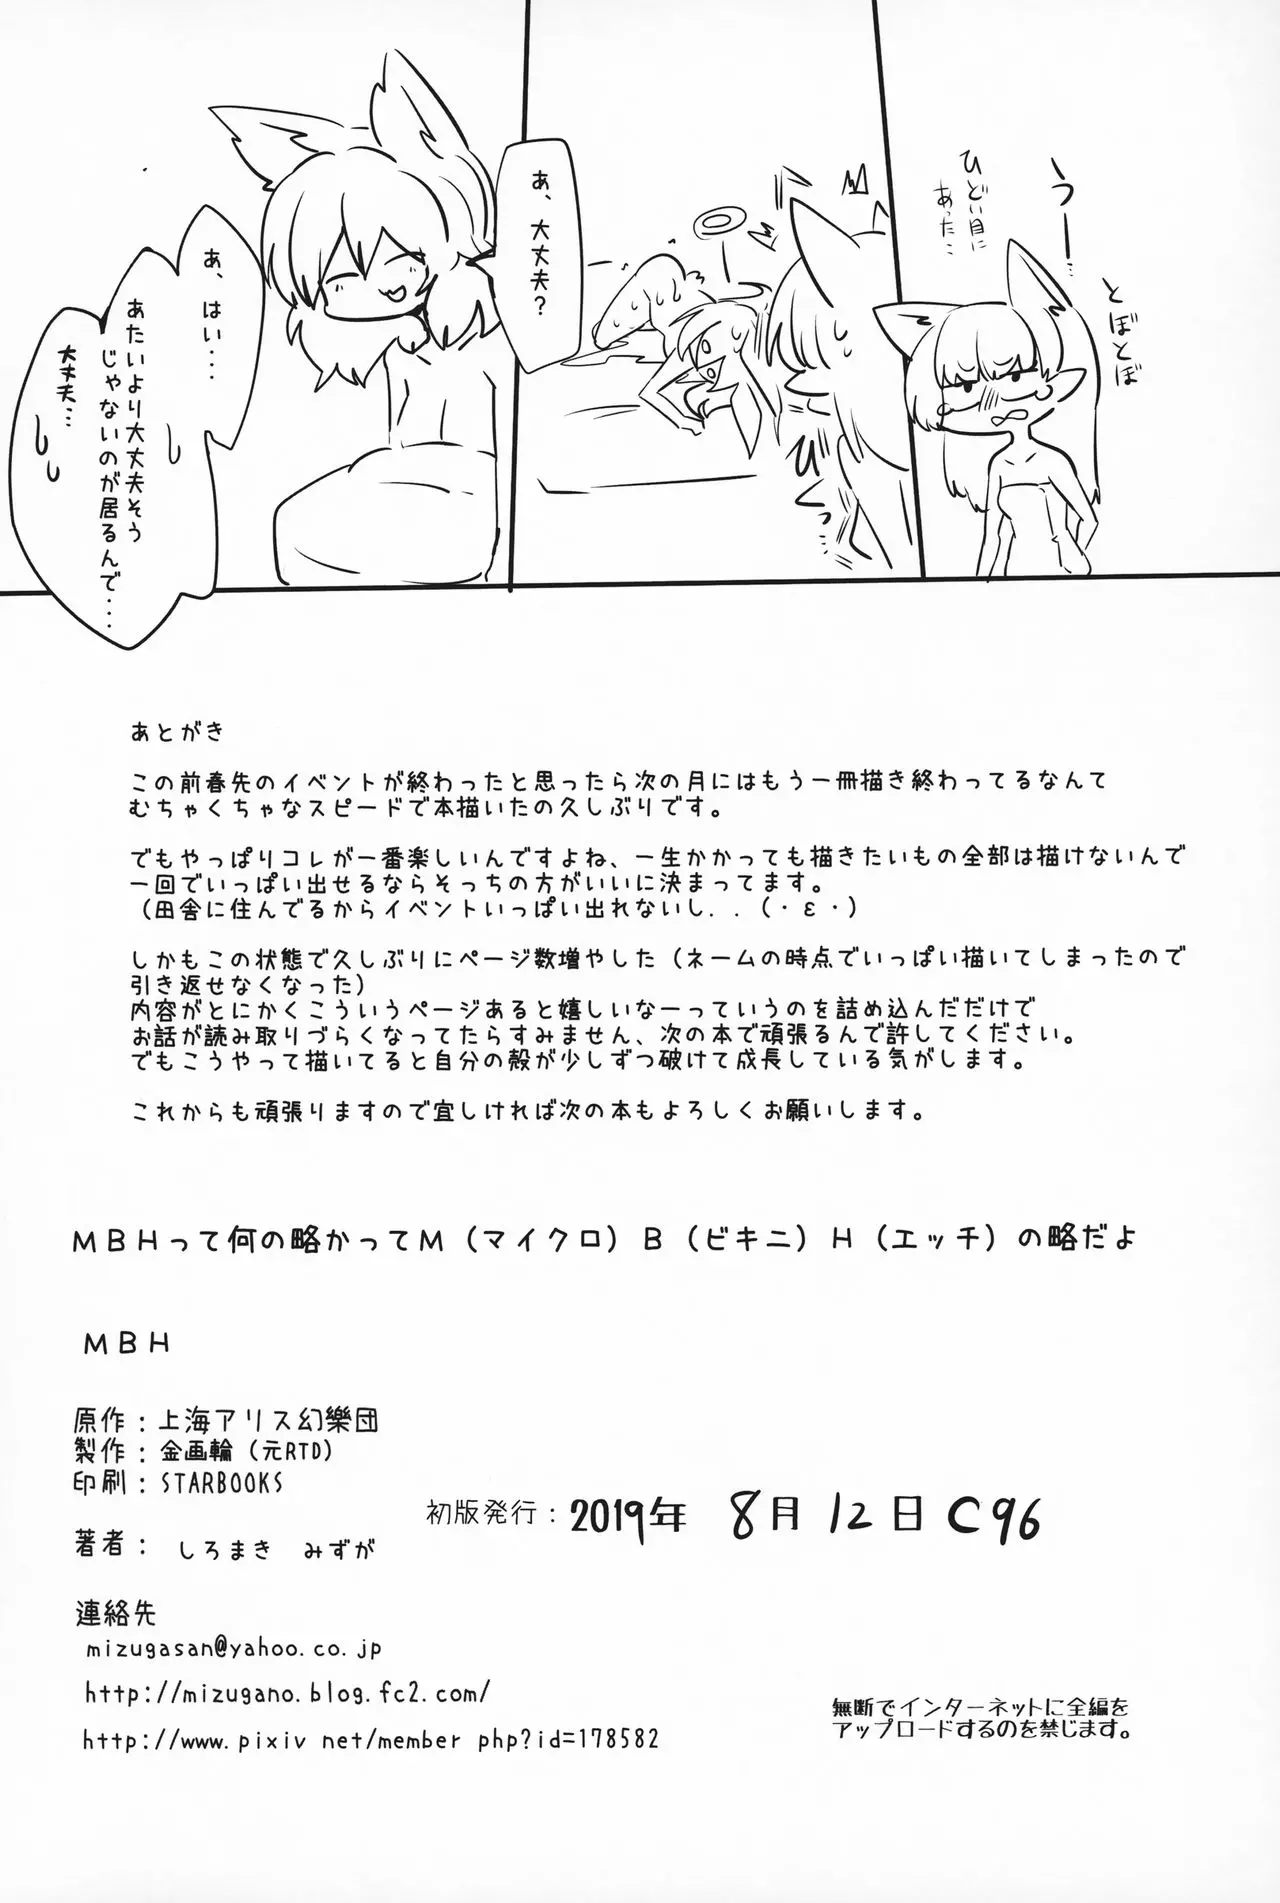 うー…
ひどい目に
あった…
とぼとぼ
ひくっ
あ、大丈夫？
あ、はい...
あたいより大丈夫そう
じゃないのが居るんで....
大丈夫...
あとがき
この前春先のイベントが終わったと思ったら次の月にはもう一冊描き終わってるなんて
むちゃくちゃなスピードで本描いたの久しぶりです。
でもやっぱりコレが一番楽しいんですよね、一生かかっても描きたいもの全部は描けないんで
一回でいっぱい出せるならそっちの方がいいに決まってます。
（田舎に住んでるからイベントいっぱい出れないし．．（・ε・）
しかもこの状態で久しぶりにページ数増やした（ネームの時点でいっぱい描いてしまったので
引き返せなくなった）
内容がとにかくこういうページあると嬉しいなーっていうのを詰め込んだだけで
お話が読み取りづらくなってたらすみません、次の本で頑張るんで許してください。
でもこうやって描いてると自分の殻が少しずつ破けて成長している気がします。
これからも頑張りますので宜しければ次の本もよろしくお願いします。
ＭＢＨって何の略かってＭ（マイクロ）Ｂ（ビキニ）Ｈ（エッチ）の略だよ
ＭＢＨ
原作：上海アリス幻樂団
製作：金画輪（元RTD）
印刷：STARBOOKS
初版発行：2019年 8月 12日 C96
著者： しろまき みずが
連絡先
mizugasan@yahoo.co.jp
http://mizugano.blog.fc2.com/
http://www.pixiv net/member php?id=178582
無断でインターネットに全編を
アップロードするのを禁じます。